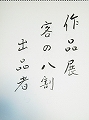 作品展
客の八割
出品者